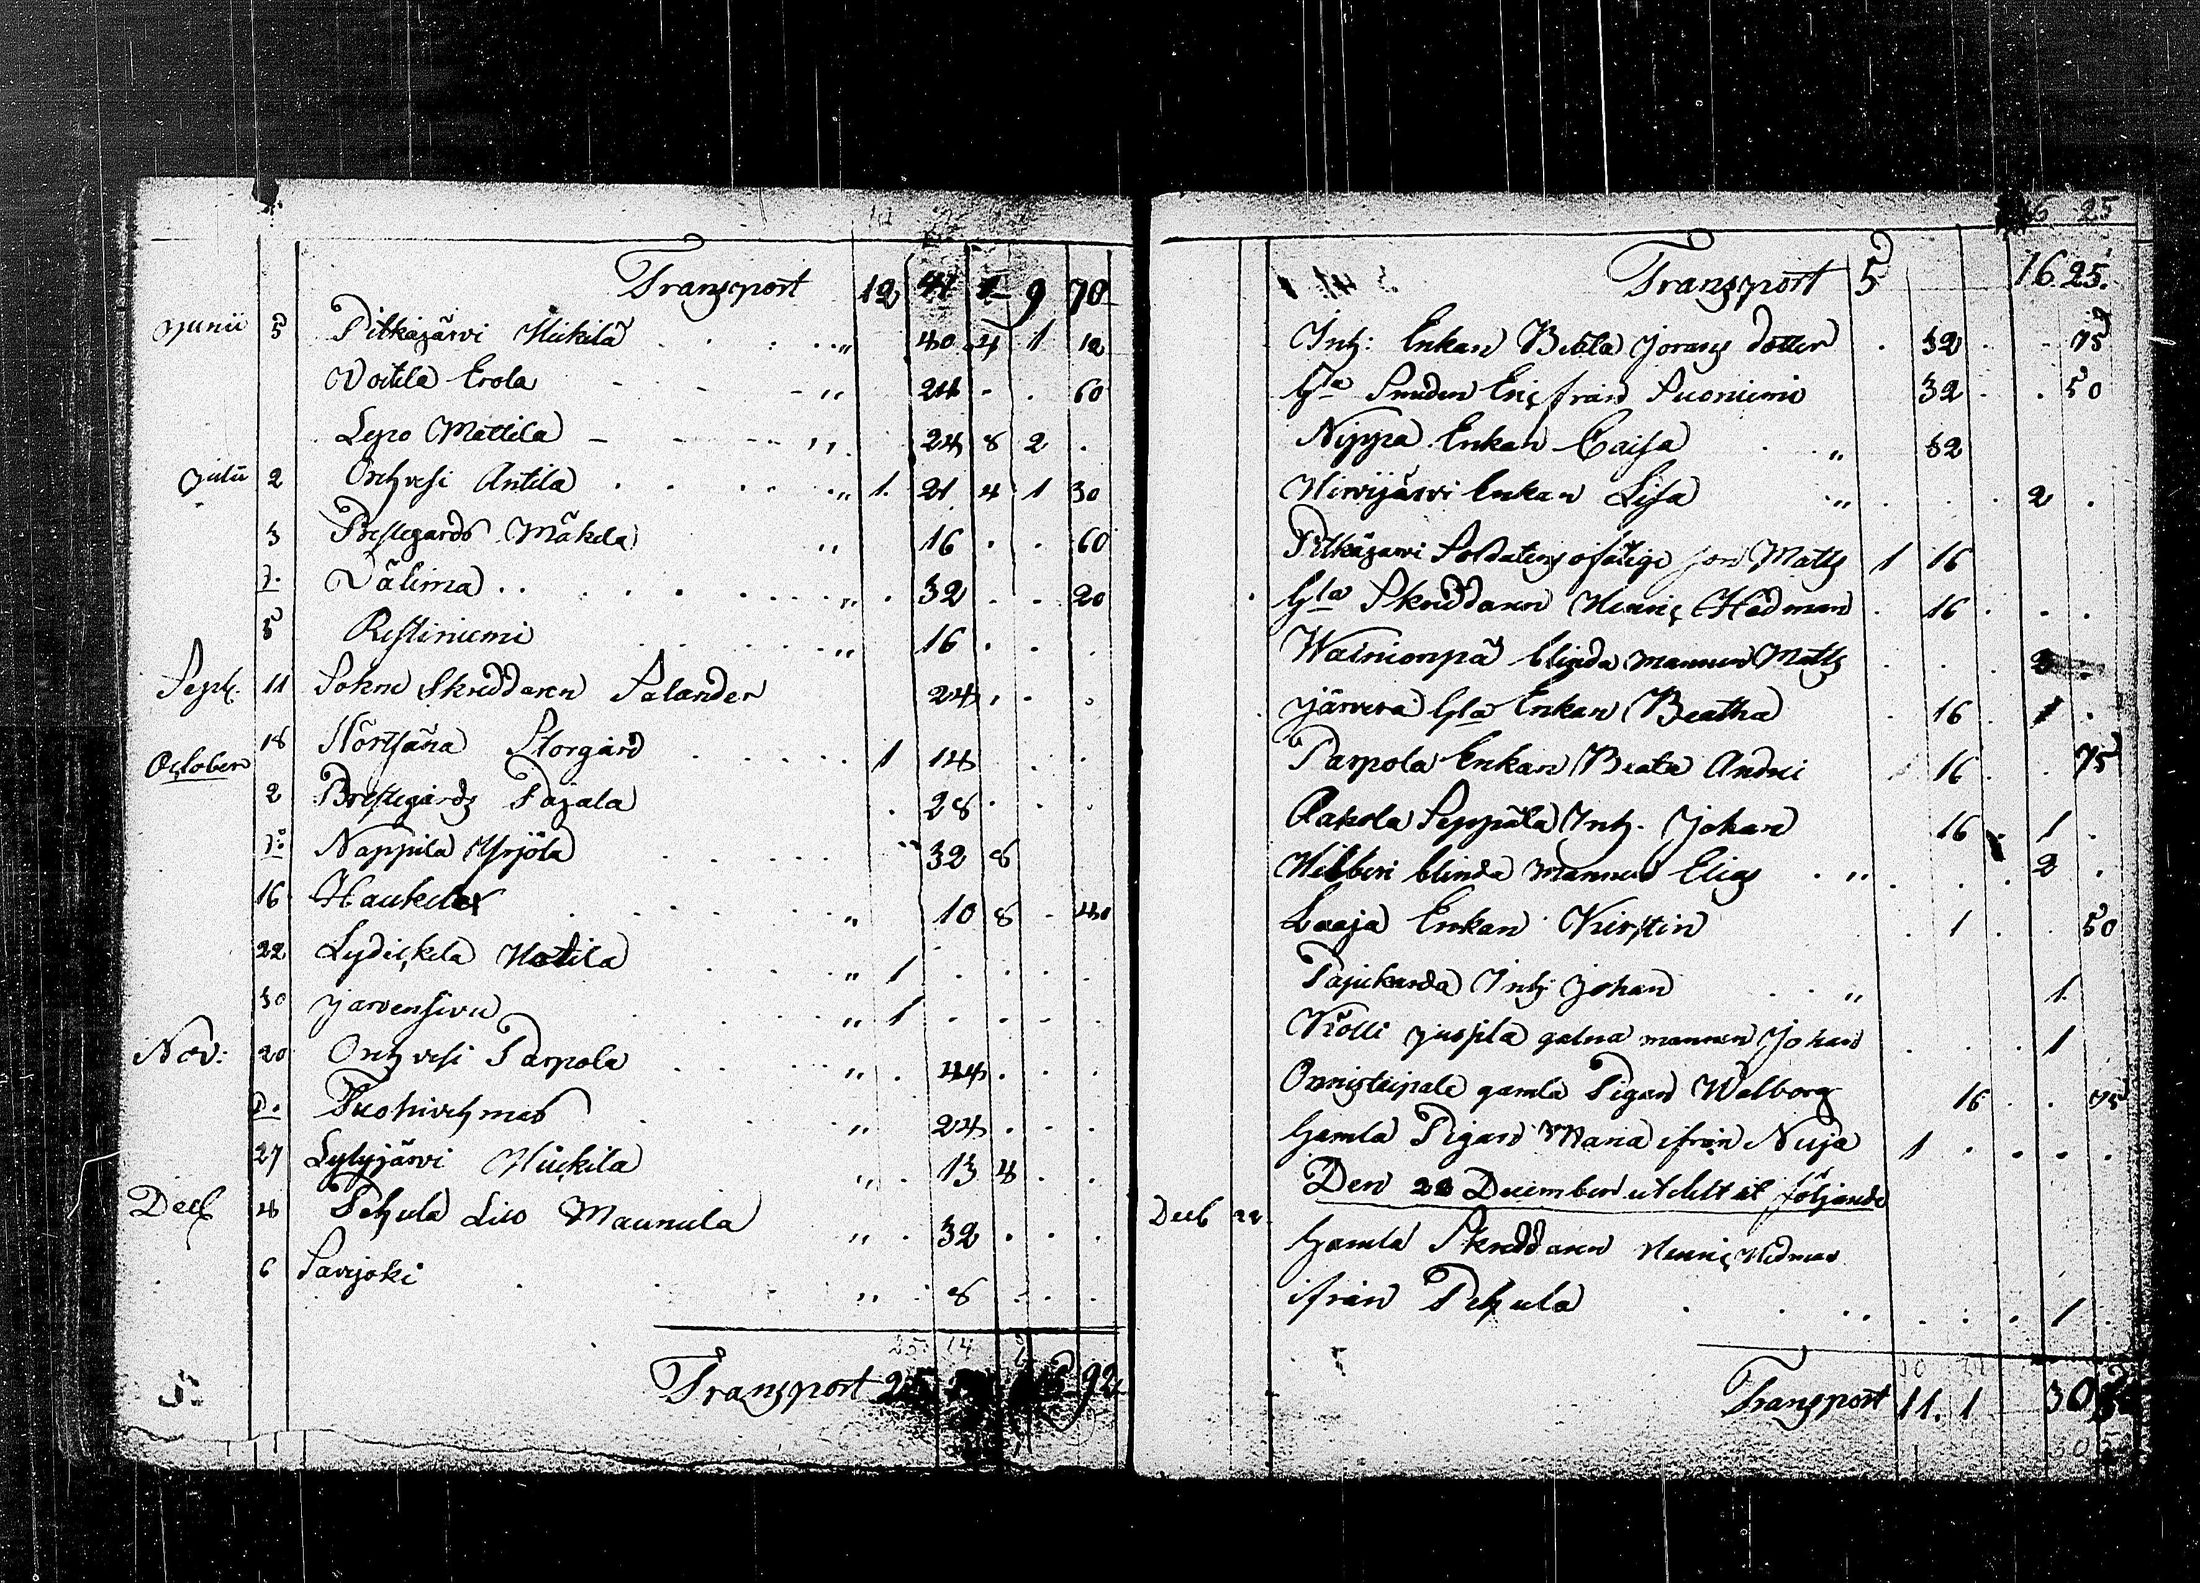 Transport 12 41 9 70
Junii 5 Pitkäjärvi Heikilä 40 4 1 12
Voitila Erola 24 60
Lepo Mattila 24 8 2
Julii 2 Orihvesi Antila 1 21 4 1 30
3 Prestegårds Mäkelä 16 60
7. Välima 32 20
5 Restiniemi 16
Sept. 11 Sokne Skreddaren Salander 24
18 Körtsänä Storgård 1 14
October
2 Prestegårds Pajala 28
Nappila Yrjölä 32 8
16 Haukila 10 8 40
22 Lydickela Hatila 1
30 Jarvensivu 1
Nov: 20 Orihvesi Parpola 44
D. Tuohivehmas 24
27 Lylyjärvi Heickilä 13 4
Decb 4 Pehula Liuo Maunula 32
6 Savijoki 8
25 14
Transport 25 92
6 25
Transport 5 16 25.
Inh: Enkan Beata Jorans dotter 32 75
Gla Smeden Eric från Suoniemi 32 50
Nippa Enkan Caisa 32
Hirvijärvi Enkan Lisa 2
Pitkäjarvi Soldatens ofärige son Matts 1 16
Gla Skreddaren Henric Hedman 16
Wäinionpä blinda mannen Matts 2
Järvera Gla Enkan Beatha 16 1
Parpola Enkan Beata Andri 16 75
Rakola Seppälä Inh. Johan 16 1
Hilberi blinda mannen Elias 2
Laaja Enkan Kirstin 1 50
Pajukanda Inh: Johan 1
Kiolli Juspila galna mannen Johan 1
Onnisteipale gamla Pigan Walborg 16 75
Gamla Pigan Maria ifrån Nuja 1
Den 22 December utdelt åt följande
Decb 22
Gamla Skreddaren Henric Hedman
ifrån Pehula 1
Transport 11. 1 30